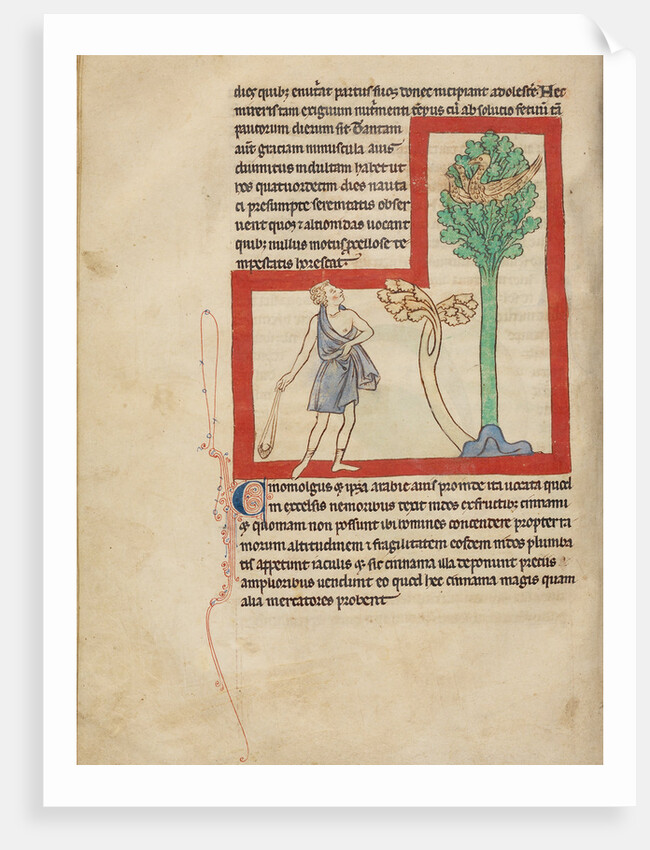 dies quib; enut͛at partus suos donec incipiant adolesce͛. Hec
miretis tam exiguum nut͛menti te͛pus cu͛ absolucio fetuu͛ ta͛
paucorum dierum sit. Tantam
aut͛ graciam minuscula auis
diuinitus indultam habet ut
hos quatuordecim dies nauta
ci presumpte serenitatis obser
uent quos ⁊ altionidas uocant
quib; nullus motus p͛cellose te͛
mpestatis horescat.
Cinomolgus ⁊ ip͛a arabie auis proinde ita uocata quod
in excelsis nemoribus texit nidos ex fructib; cinnami
⁊ quoniam non possunt ibi homines conscendere propter ra
morum altitudinem ⁊ fragilitatem eosdem nidos plumba
tis appetunt iaculis ⁊ sic cinnama illa deponunt preciis
amplioribus uendunt eo quod hec cinnama magis quam
alia mercatores probent